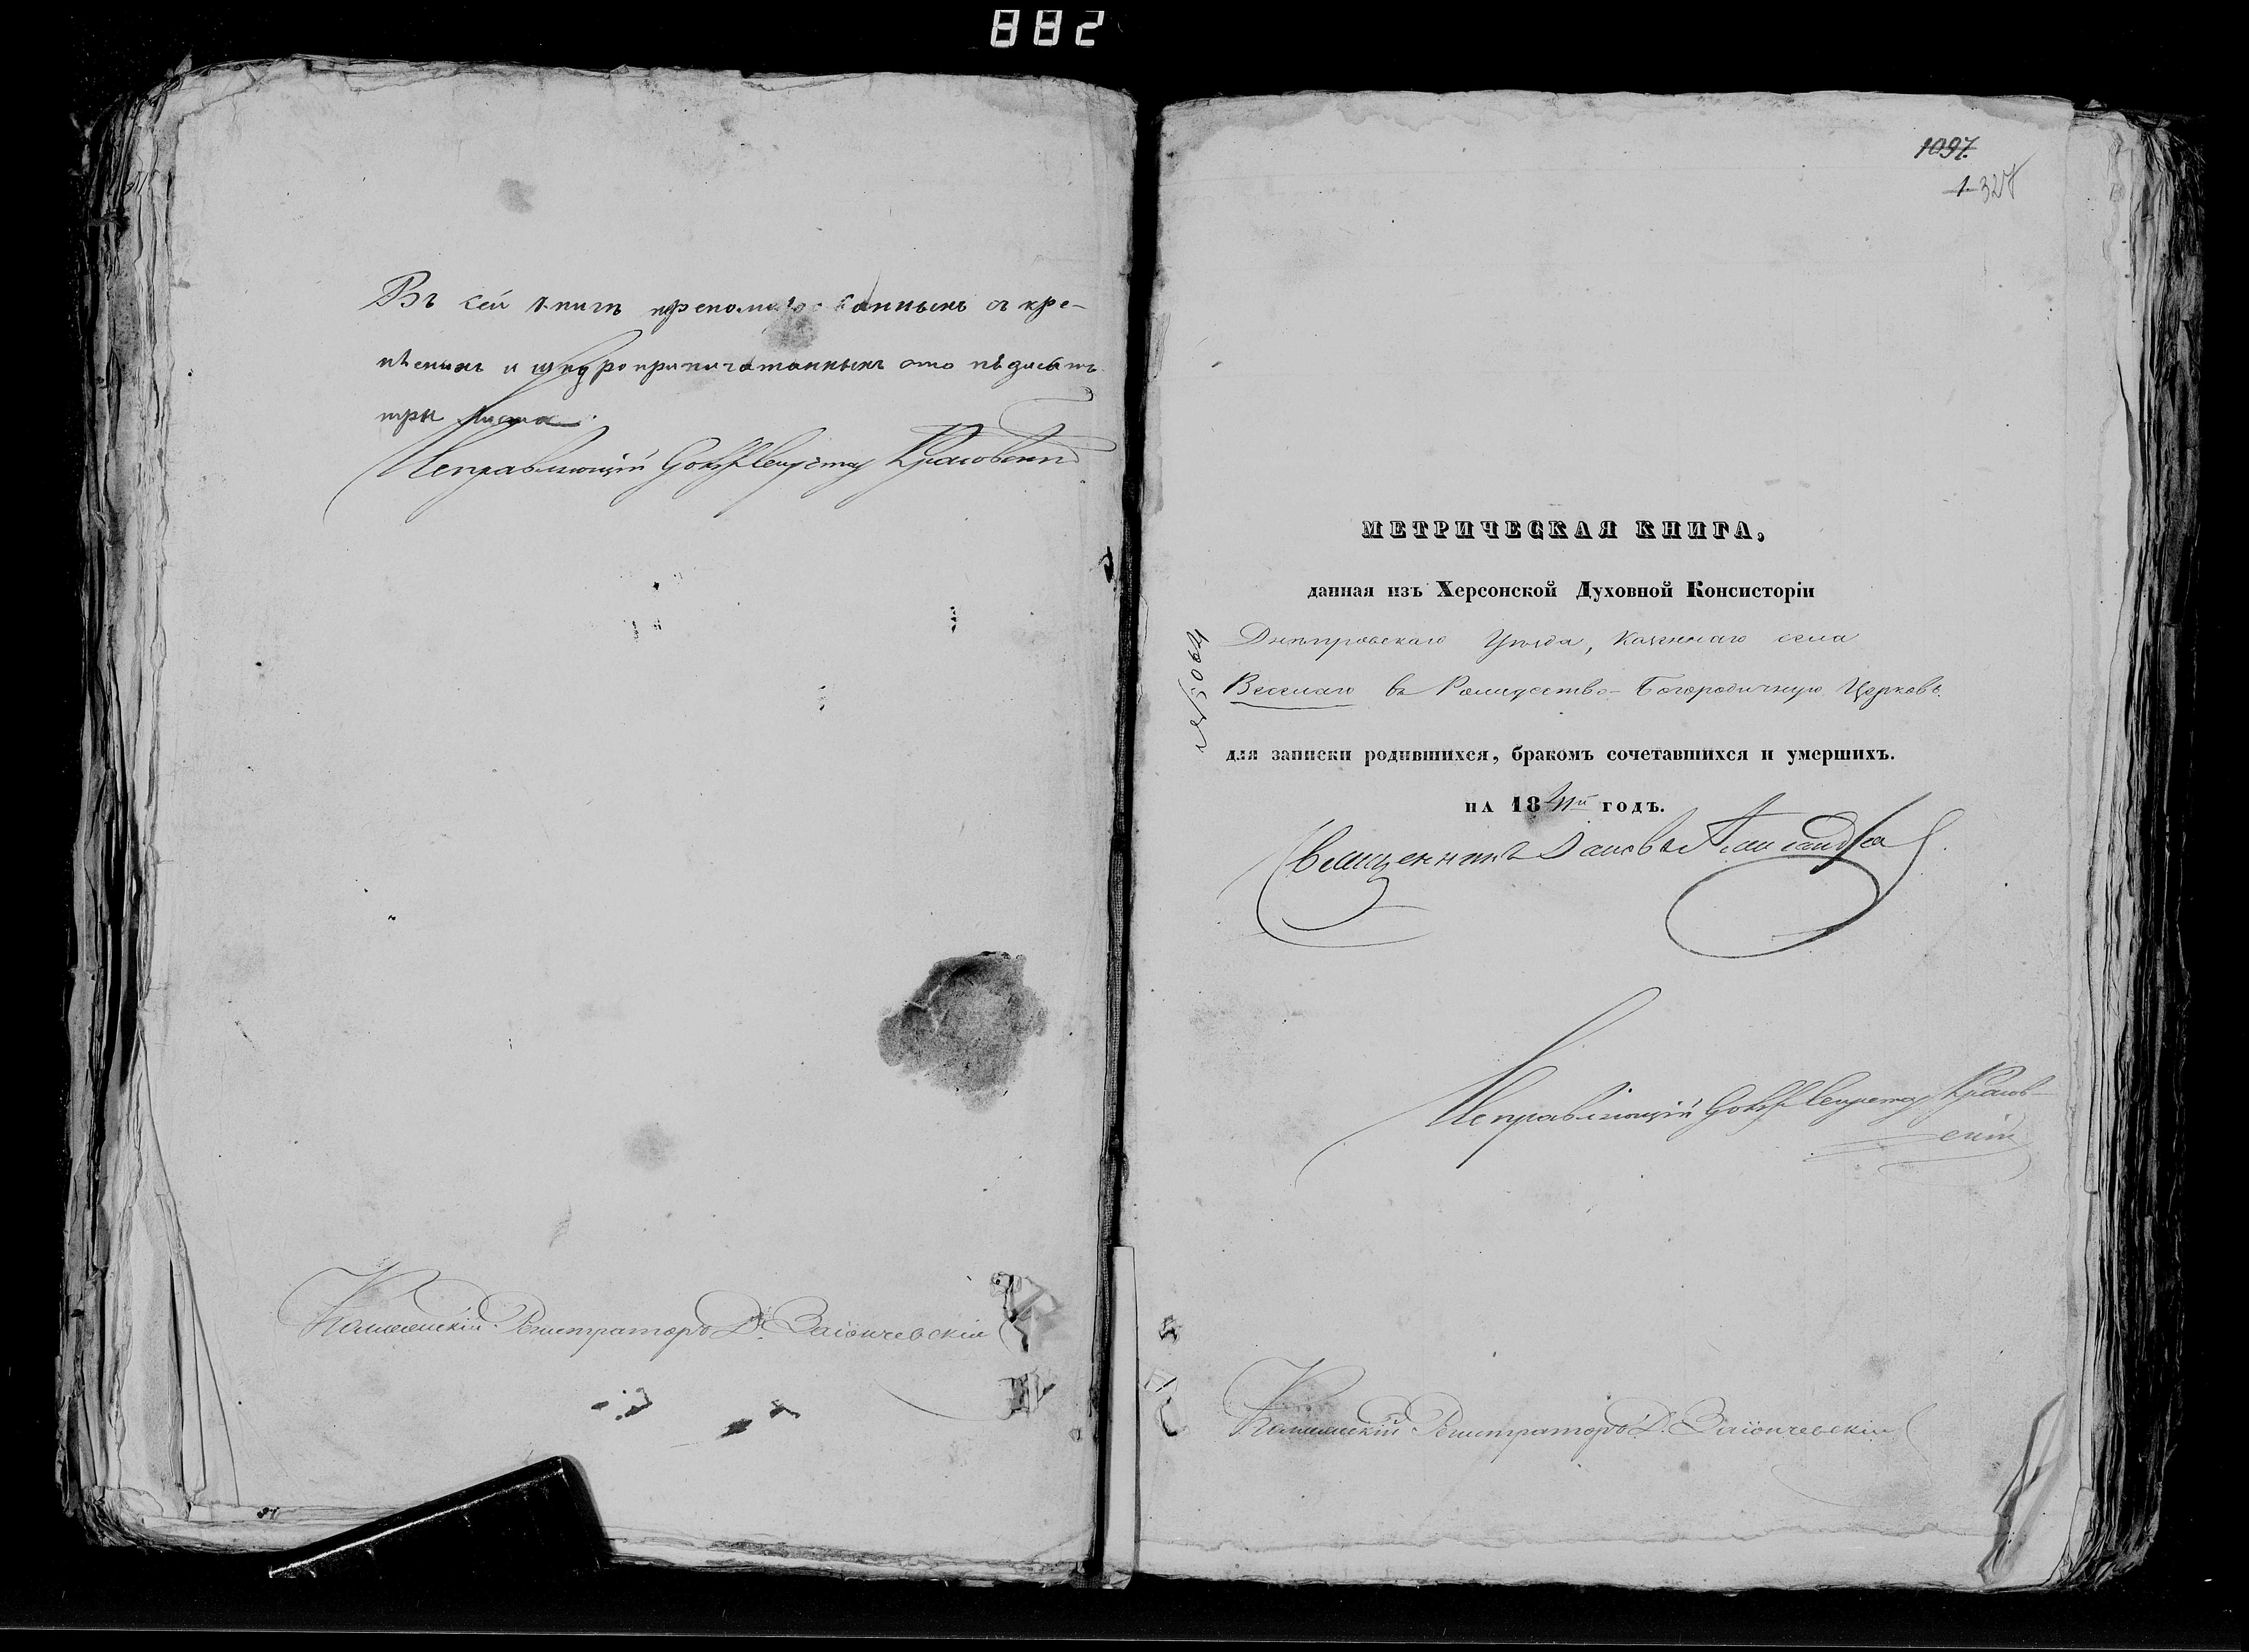 882
Въ сей книгѣ препомерованныхъ скре-
пленныхъ и шнуроприпечатанныхъ сто пѣдисятъ
три листа.
Исправляющій Секретарь Красовскій
Коллежскій Регистраторъ Д. Заіончевскій
1097.
1 327
МЕТРИЧЕСКАЯ КНИГА,
данная изъ Херсонской Духовной Консисторіи
Днѣпровскаго Уѣзда, Казеннаго села
Веселаго въ Рождество-Богородичную Церковь.
№ 5064
для записки родившихся, бракомъ сочетавшихся и умершихъ.
НА 1841й ГОДЪ.
Священникъ Іаковъ
Исправляющій Секретарь Красов-
скій
Коллежскій Регистраторъ Д. Заіончевскій